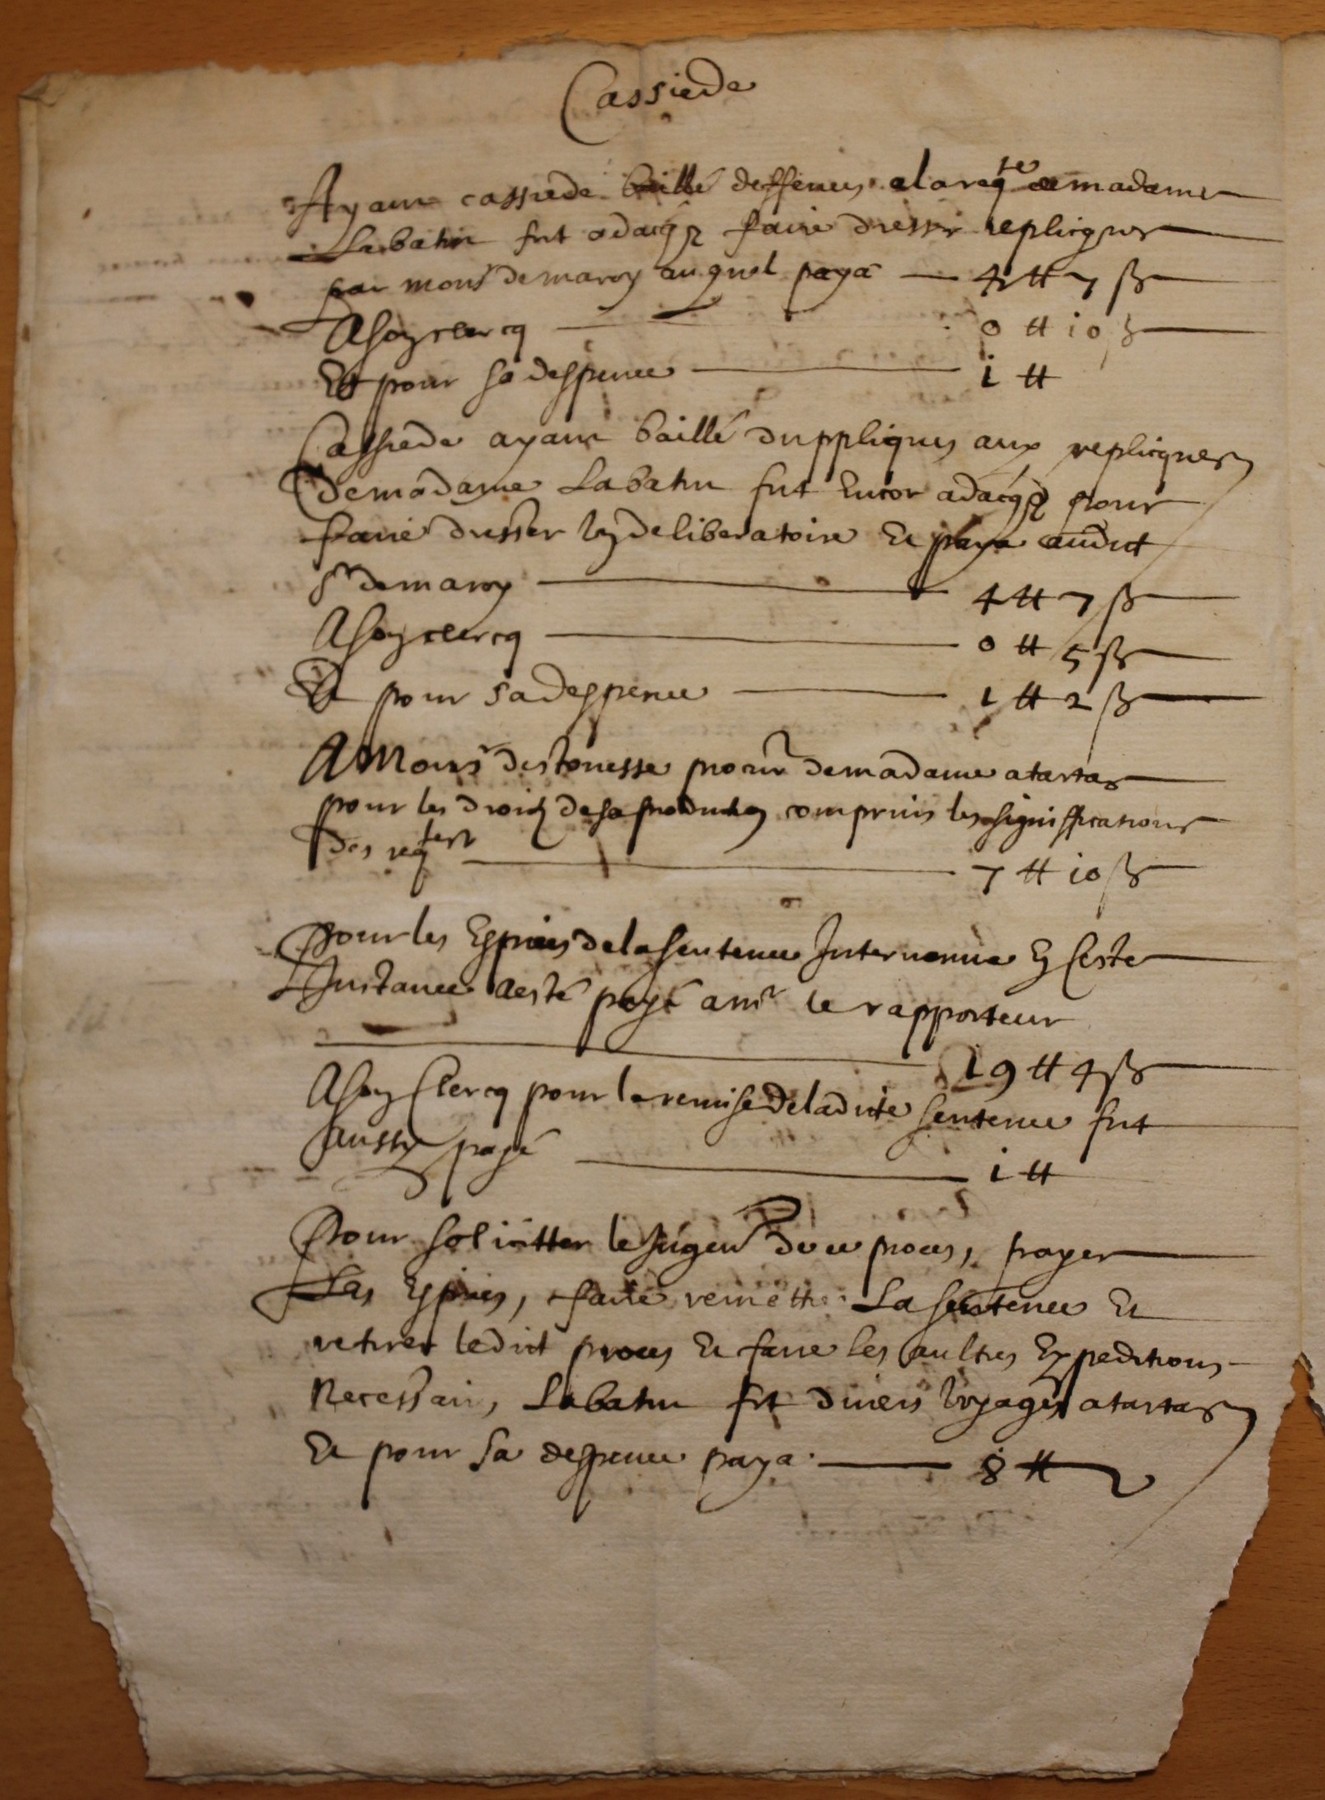 Cassiede
Ayant cassiede baillé deffences a la reqte de madame
Labatut fut a dacqz faire dresser replicques
par monsr de maroy auquel paya — 4 ₶ 7 ß
A son clercq — 0 ₶ 10 ß
Et pour sa despence — i ₶
Cassiede ayant baillé duppliques aux replicques
de madame Labatut fut encor a dacqz pour
faire dresser un deliberatoire et paya audict
sr de maroy — 4 ₶ 7 ß
A son clercq — 0 ₶ 5 ß
Et pour sa despence — 1 ₶ 2 ß
A Monsr destonesse procur de madame a tartas
pour les droitz de sa production comprins les significations
des reqtes — 7 ₶ i0 ß
Pour les Espices de la sentence Intervenue en Ceste
Instance a esté payé a mr le rapporteur
— 19 ₶ 4 ß
A son Clercq pour la remise de ladicte sentence fut
aussy payé — i ₶
Pour soliciter le jugemt de ce proces, payer
Las Espices, faire remettre La sentence Et
retirer ledict proces Et faire les aultres Expeditions
Necessaires, Labatut fit divers voyages a tartas
Et pour sa despence paya — 8 ₶